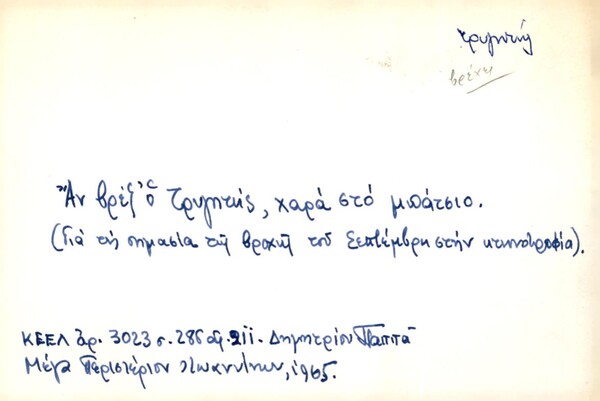 τρυγητής
βρέχω
Ἄν βρέξ' ὁ Τρυγητής, χαρά στό μπάτσιο.
(Γιά τή σημασία τῆς βροχῆς τοῦ Σεπτέμβρη στήν κτηνοτροφία).
ΚΕΕΛ ἀρ. 3023 σ. 286 Δημητρίου Παππᾶ
Μέγα Περιστέριον Ἰωαννίνων, 1965.